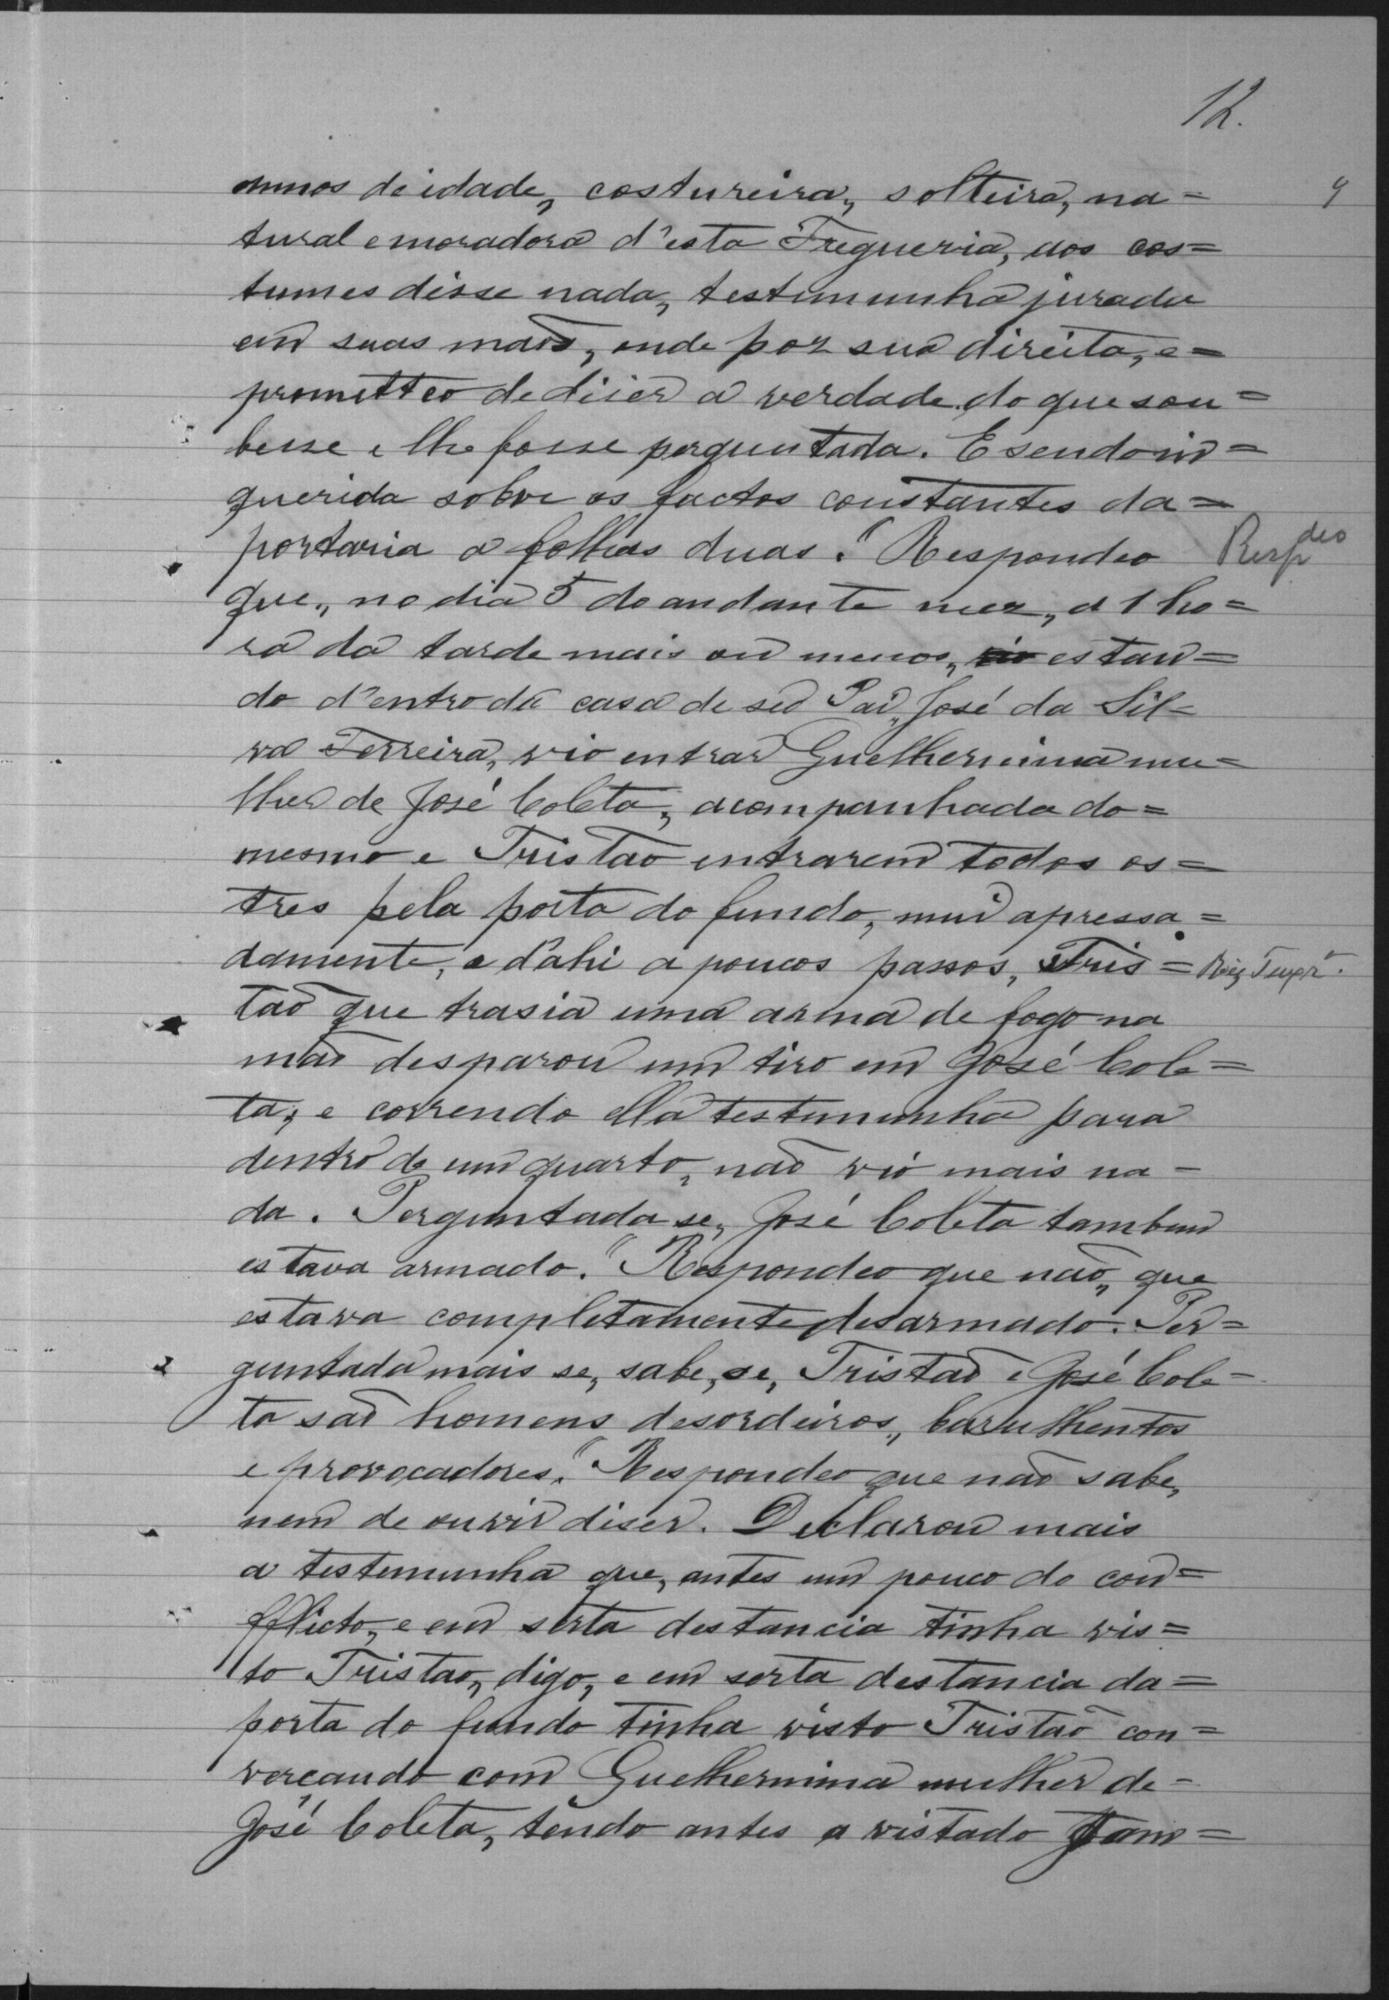 12.
9
annos de idade, costureira, solteira, na=
tural e moradora d'esta Fregueria, aos cos=
tumes disse nada, testimunha jurada
em suas maõs, onde poz sua direita, e=
prometteo de diser a verdade do que sou=
besse e lhe fosse perguntada. E sendo in=
querida sobre os factos constantes da=
portaria a folhas duas. "Respondeo
Respdeo
que, no dia 5 do andante mez, a 1 ho=
ra da tarde mais ou menos, vio estan=
do d'entro da casa de seu Pai, José da Sil=
va Ferreira, vio entrar Guelhermina mu=
lher de José Coleta, acompanhada do=
mesmo e Tristaõ entrarem todos os=
tres pela porta do fundo, mui apressa=
damente, e d'ahi a poucos passos, Tris=
taõ que trasia uma arma de fogo na
maõ desparou um tiro em José Cole=
ta, e correndo ella testimunha para
dentro de um quarto, naõ vio mais na-
da. Perguntada se, José Coleta tambem
estava armado. "Respondeo que naõ, que
estava completamente desarmado. Per=
guntada mais se, sabe, se, Tristaõ e José Cole-
ta saõ homens desordeiros, barulhentos
e provocadores. "Respondeo que naõ sabe,
nem de ouvir diser. Declarou mais
a testemunha que, antes um pouco do con=
fflicto, e em serta destancia tinha vis=
to Tristaõ, digo, e em serta destancia da=
porta do fundo tinha visto Tristaõ con=
verçando com Guelhermina mulher de-
José Coleta, tendo antes a vistado Jam=